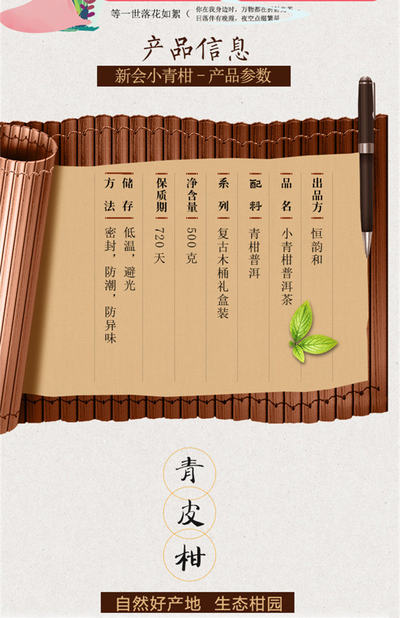 等一世落花如絮（
你在我身边时，万物都在
日落伴有晚霞，夜空点缀繁星
产品信息
新会小青柑-产品参数
出品方 恒韵和
品名 小青柑普洱茶
配料 青柑普洱
系列 复古木桶礼盒装
净含量 500克
保质期 720天
储存 低温，避光
方法 密封，防潮，防异味
青皮柑
自然好产地 生态柑园